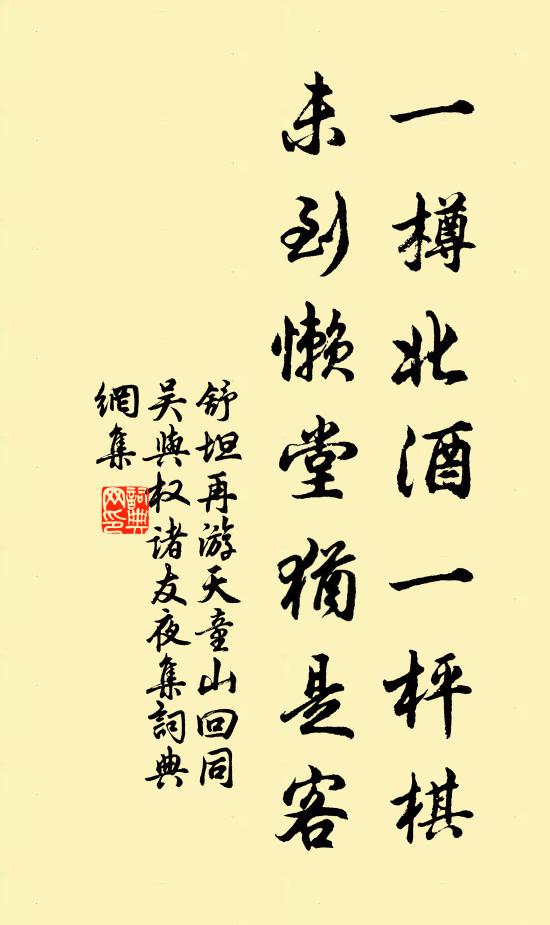 一樽北酒一枰棋
未到懒堂犹是客
舒坦再游天童山回同
吴與权诸友夜集詞典
網集
詞典
网印